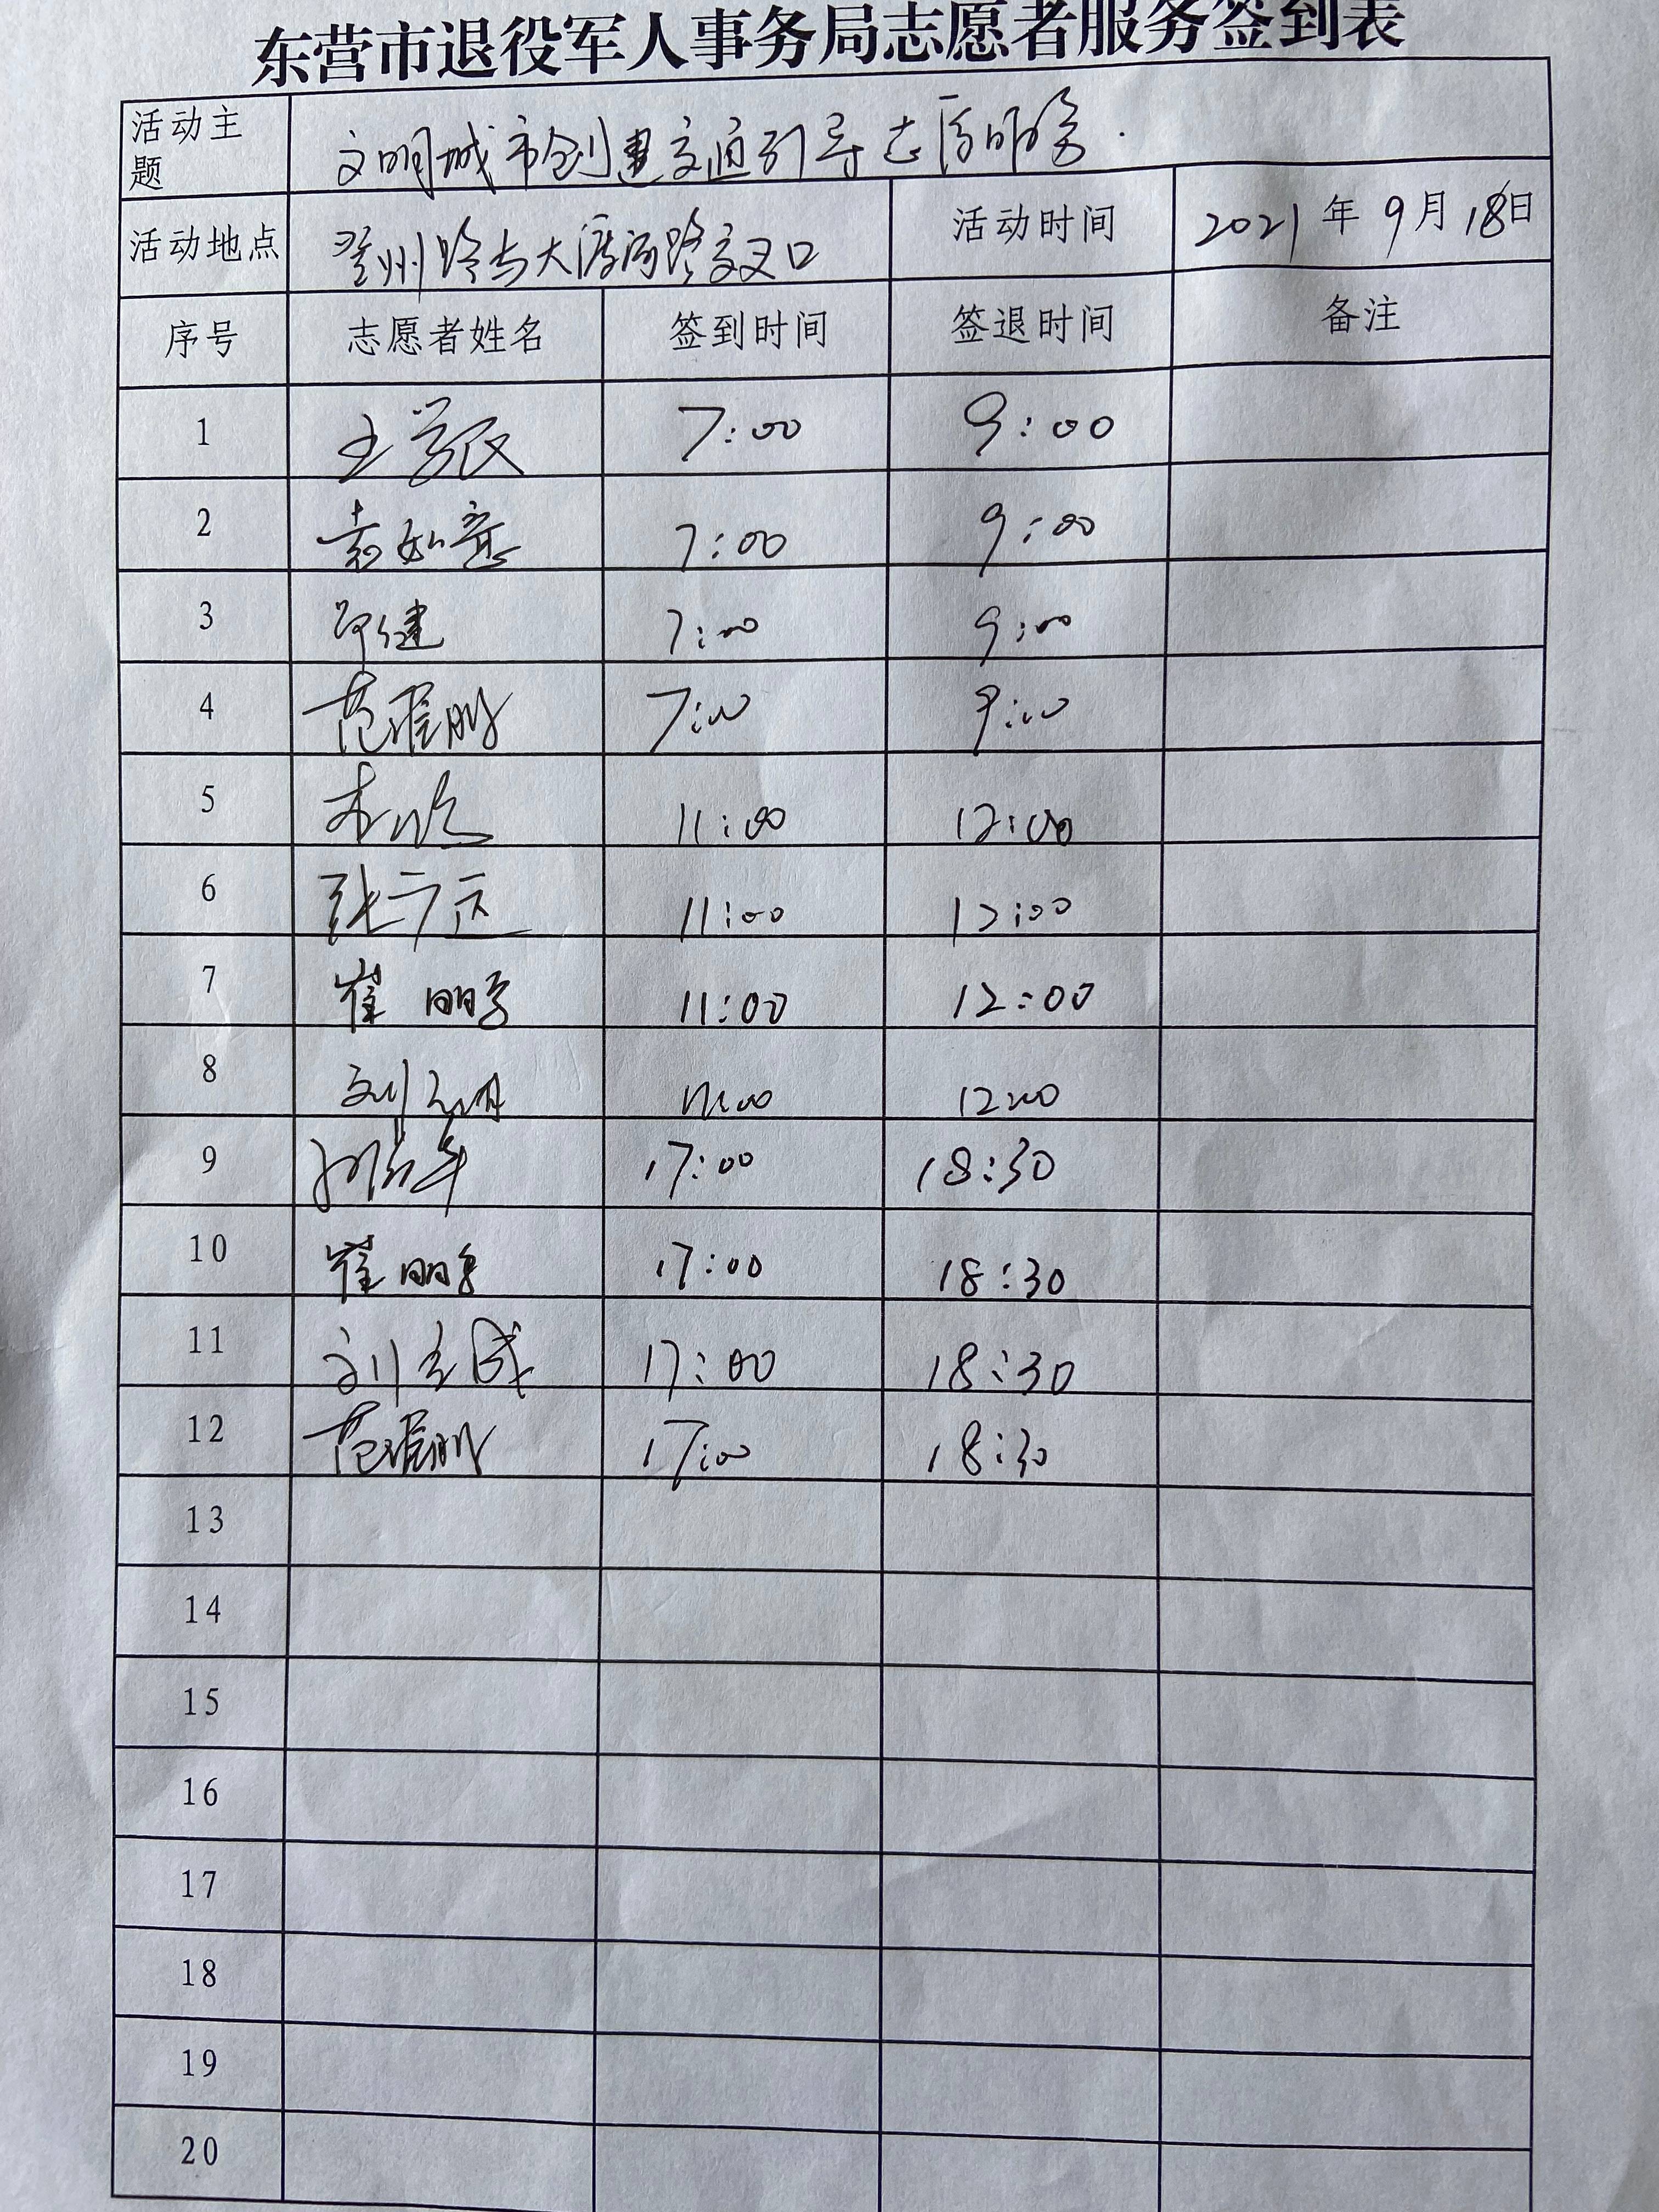 东营市退役军人事务局志愿者服务签到表
活动主题 文明城市创建交通引导志愿服务.
活动地点 登州路与大渡河路交叉口 活动时间 2021年9月18日
序号 志愿者姓名 签到时间 签退时间 备注
1 王学民 7:00 9:00
2 袁如意 7:00 9:00
3 健 7:00 9:00
4 范 鹏 7:00 9:00
5 11:00 12:00
6 张 11:00 12:00
7 崔鹏 11:00 12:00
8 刘 11:00 12:00
9 17:00 18:30
10 崔鹏 17:00 18:30
11 刘 17:00 18:30
12 范 鹏 17:00 18:30
13
14
15
16
17
18
19
20